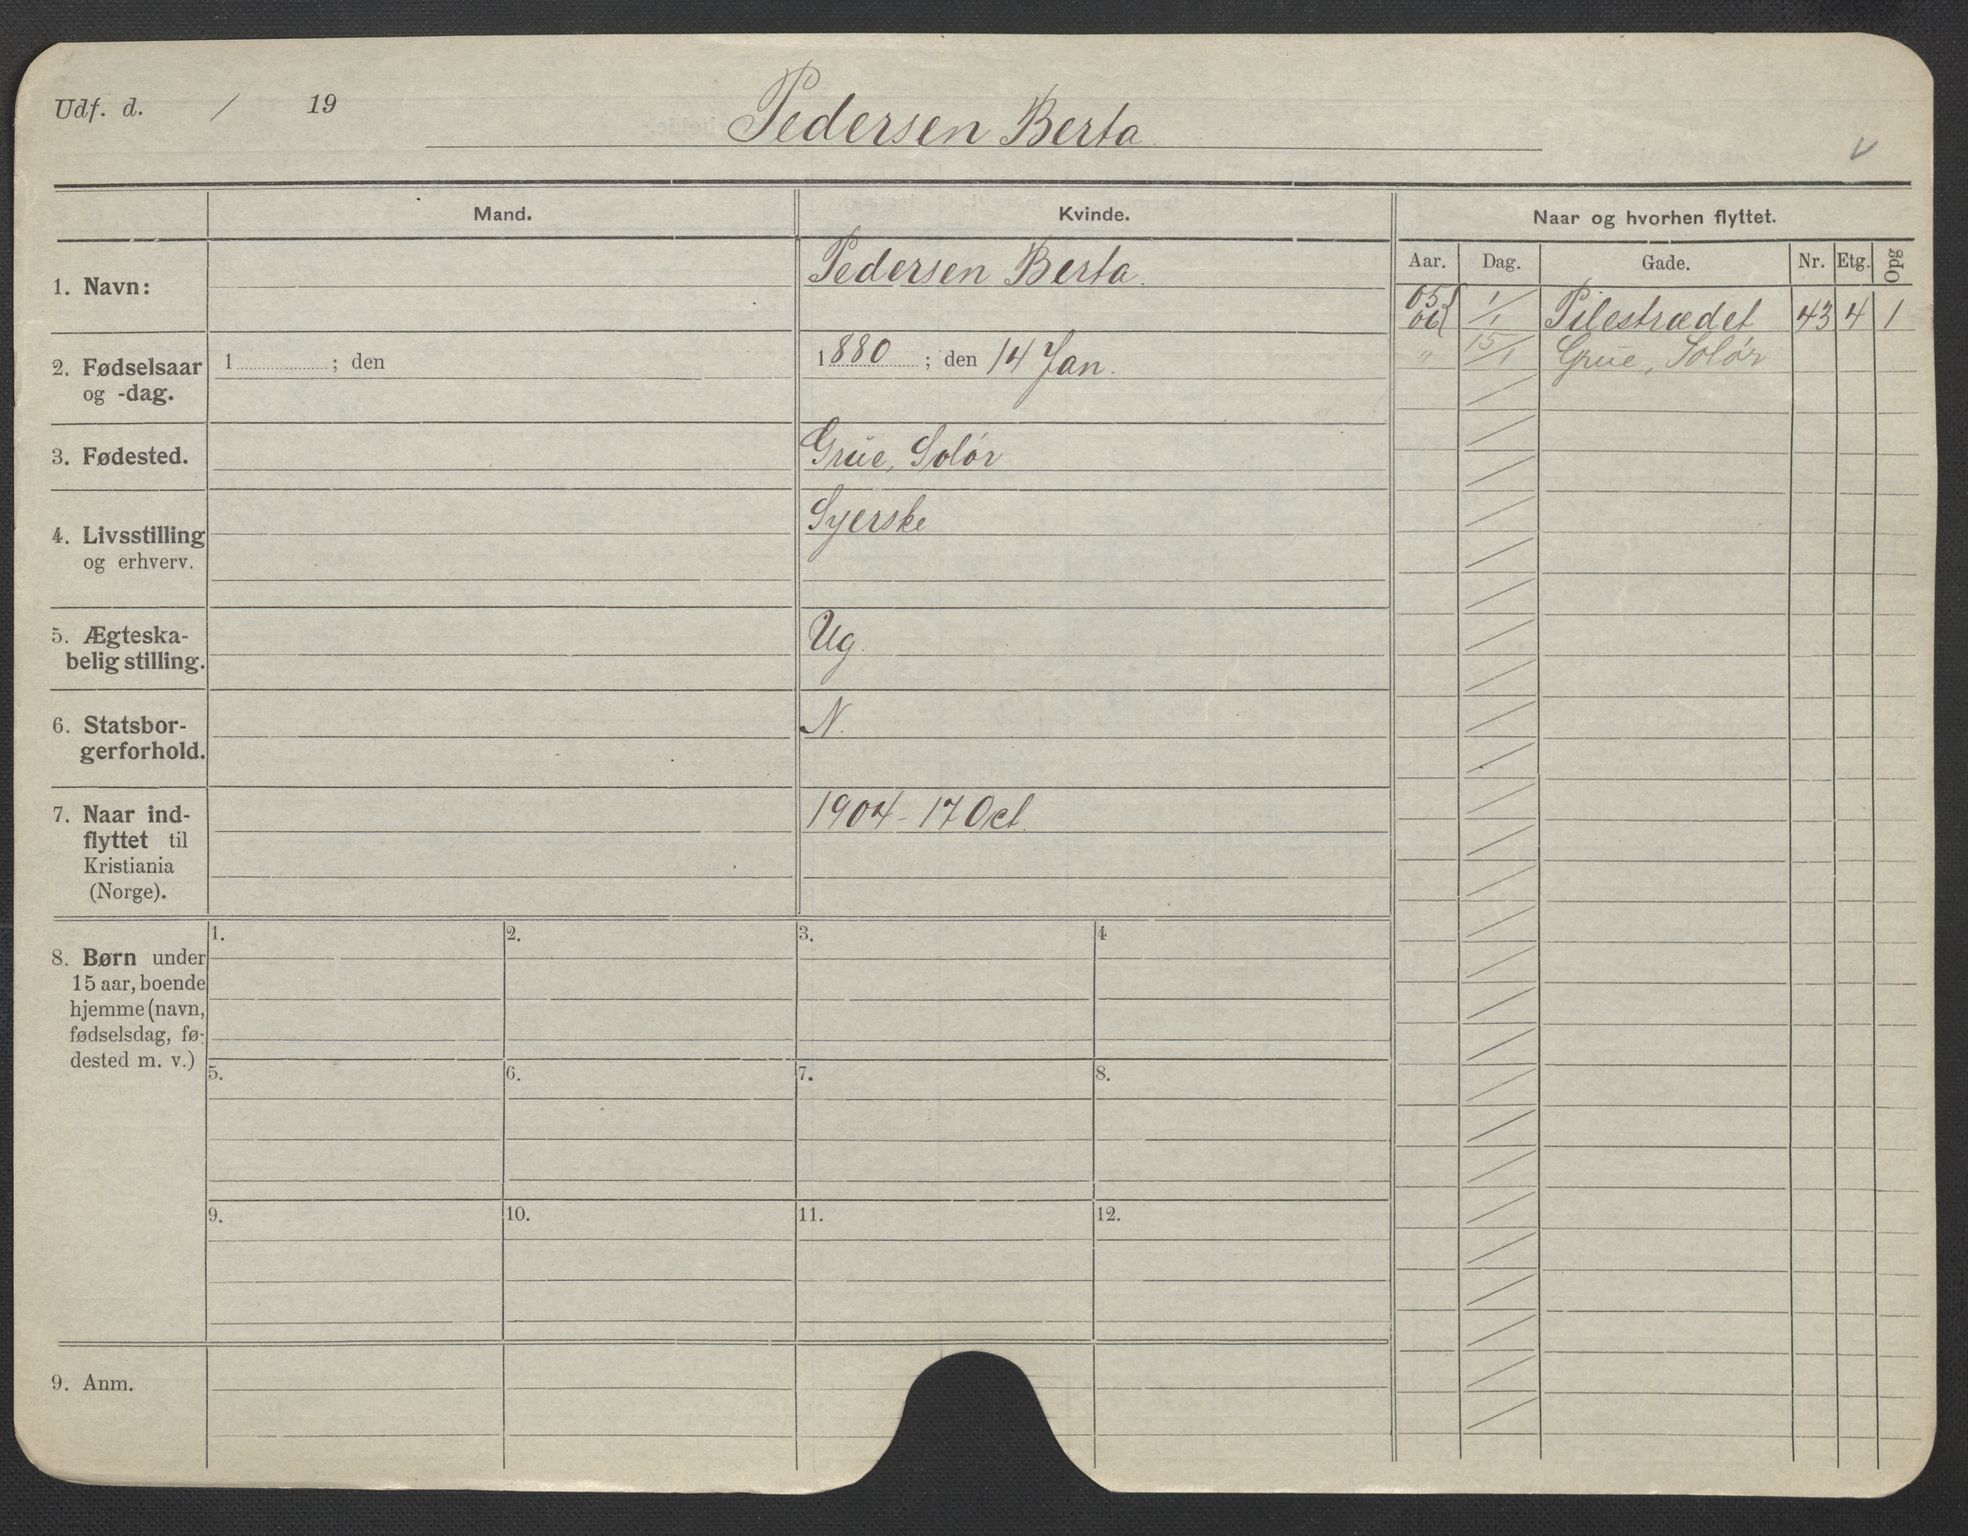 Udf. d. / 19
Pedersen Berta
Mand.
Kvinde.
Naar og hvorhen flyttet.
Aar. Dag. Gade. Nr. Etg. Opg
1. Navn:
Pedersen Berta.
05 06 1/1 Pilestrædet 43 4 1
" 15/1 Grue, Solør
2. Fødselsaar
og -dag.
1 ; den
1880 ; den 14 Jan.
3. Fødested.
Grue, Solør
4. Livsstilling
og erhverv.
Syerske
5. Ægteska-
belig stilling.
Ug.
6. Statsbor-
gerforhold.
N.
7. Naar ind-
flyttet til
Kristiania
(Norge).
1904 - 17 Oct.
8. Børn under
15 aar, boende
hjemme (navn,
fødselsdag, fø-
dested m. v.)
1. 2. 3. 4
5. 6. 7. 8.
9. 10. 11. 12.
9. Anm.